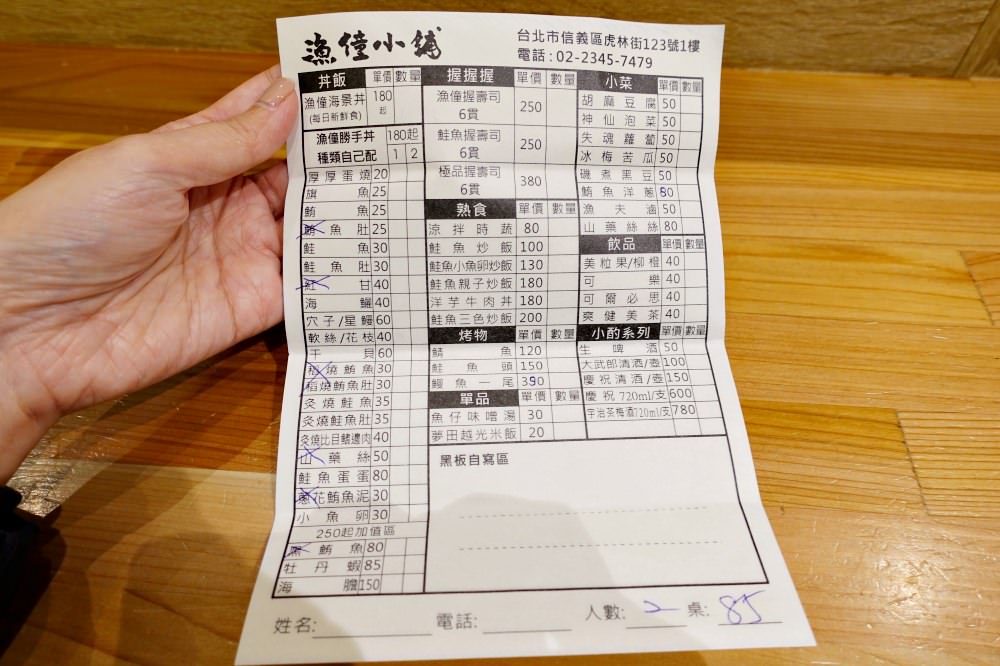 漁僮小舖
台北市信義區虎林街123號1樓
電話:02-2345-7479
丼飯 單價 數量
漁僮海景丼 180
(每日新鮮食) 起
漁僮勝手丼 180起
種類自己配 1 2
厚厚蛋燒 20
旗魚 25
鮪魚 25
鮪魚肚 25
鮭魚 30
鮭魚肚 30
紅甘 40
海鱺 40
穴子/星鰻 60
軟絲/花枝 40
干貝 60
稻燒鮪魚 30
稻燒鮪魚肚 30
炙燒鮭魚 35
炙燒鮭魚肚 35
炙燒比目鰭邊肉 40
山藥絲 50
鮭魚蛋蛋 80
蔥花鮪魚泥 30
小魚卵 30
250起加值區
黑鮪魚 80
牡丹蝦 85
海膽 150
握握握 單價 數量
漁僮握壽司
6貫 250
鮭魚握壽司
6貫 250
極品握壽司
6貫 380
熟食 單價 數量
涼拌時蔬 80
鮭魚炒飯 100
鮭魚小魚卵炒飯 130
鮭魚親子炒飯 180
洋芋牛肉丼 180
鮭魚三色炒飯 200
烤物 單價 數量
鯖魚 120
鮭魚頭 150
鰻魚一尾 390
單品 單價 數量
魚仔味噌湯 30
夢田越光米飯 20
小菜 單價 數量
胡麻豆腐 50
神仙泡菜 50
失魂蘿蔔 50
冰梅苦瓜 50
磯煮黑豆 50
鮪魚洋蔥 80
漁夫滷 50
山藥絲絲 80
飲品 單價 數量
美粒果/柳橙 40
可樂 40
可爾必思 40
爽健美茶 40
小酌系列 單價 數量
生啤酒 50
大武郎清酒/壺 100
慶祝清酒/壺 150
慶祝720ml/支 600
宇治茶梅酒720ml/支 780
黑板自寫區
姓名: 電話: 人數: 2 桌: 85